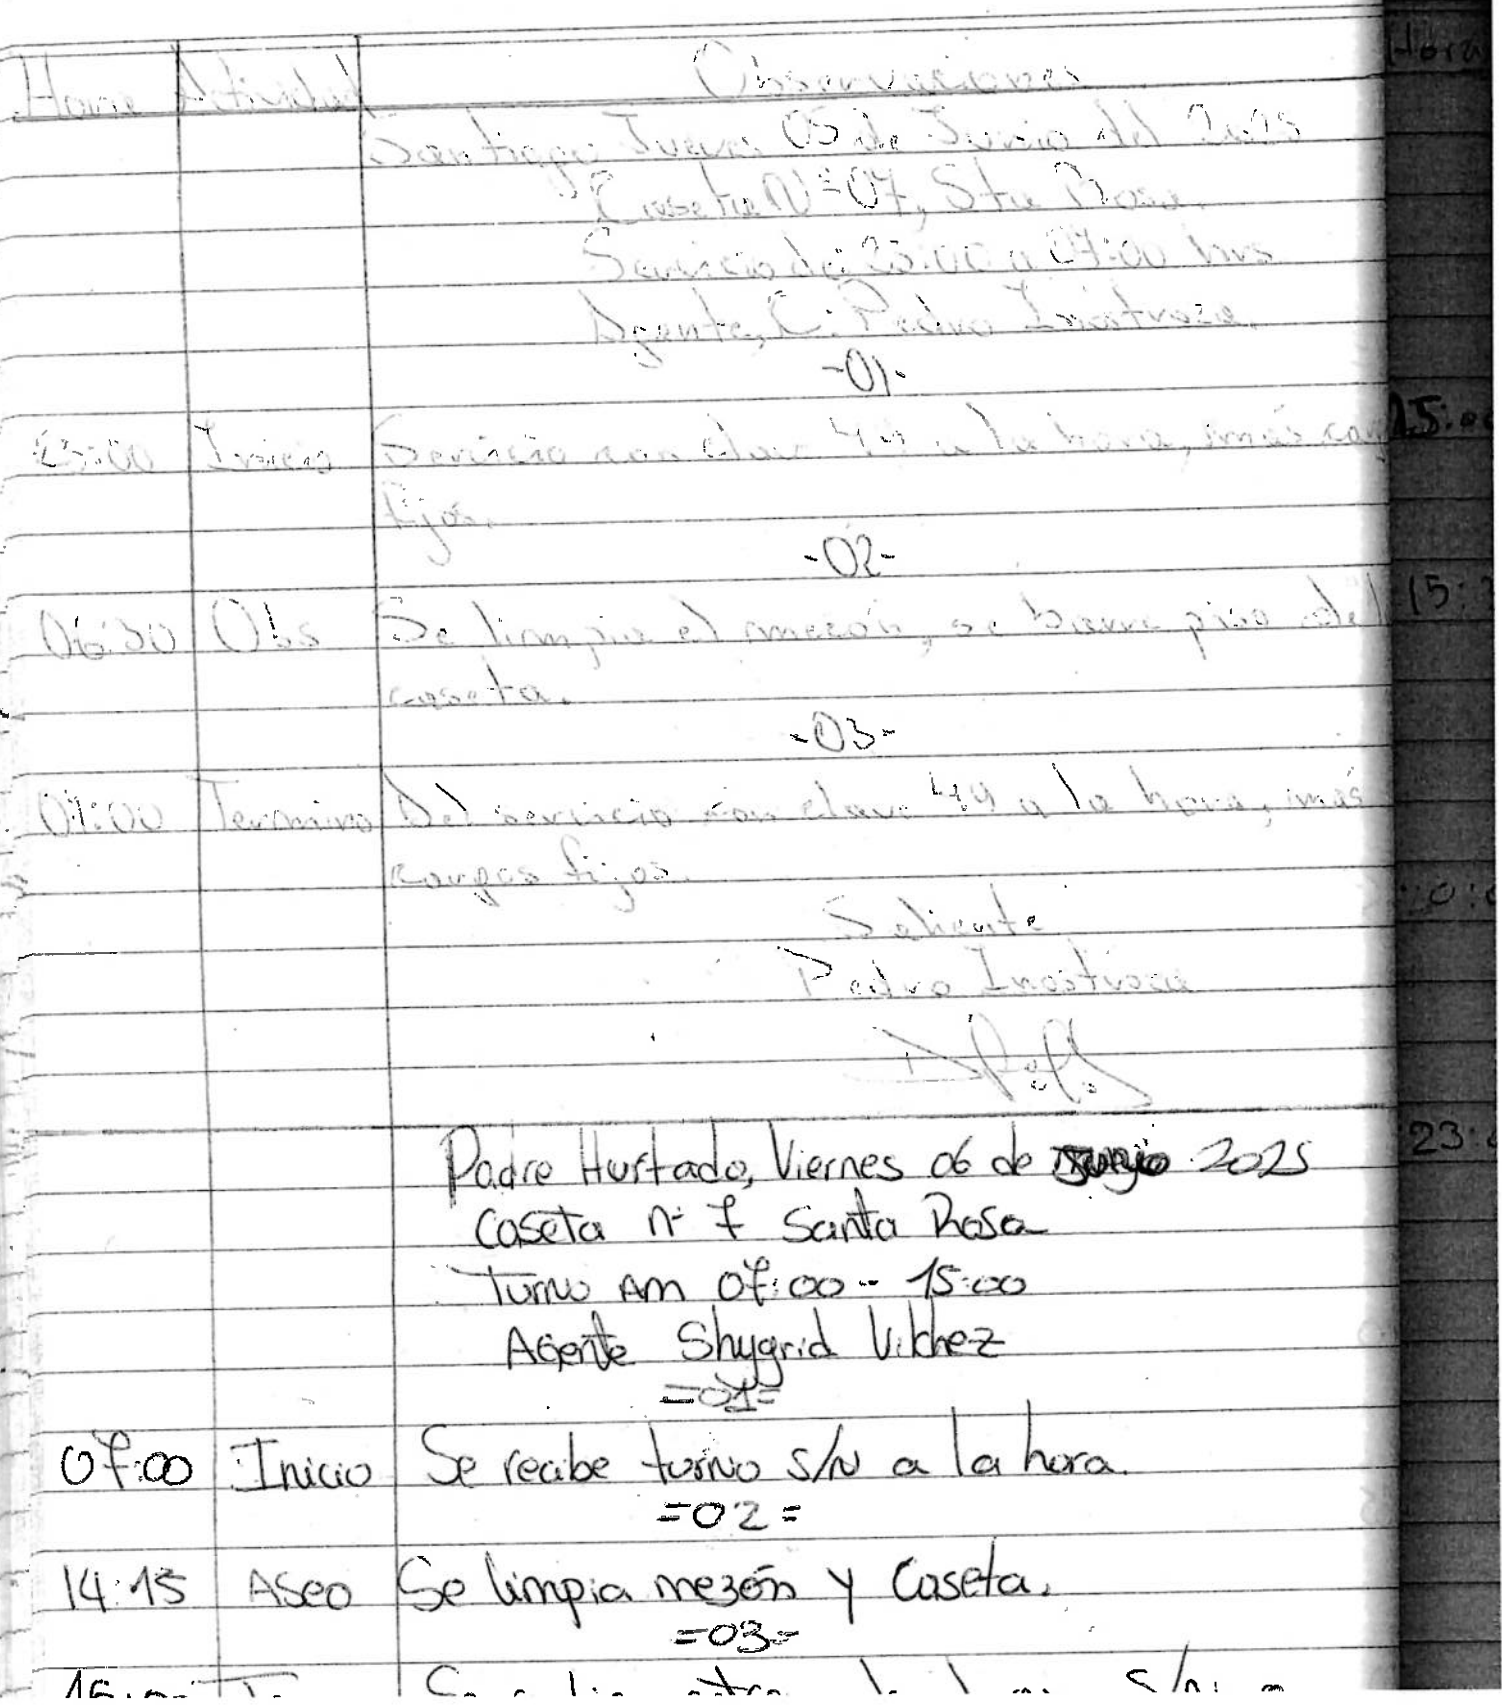 Hora Actividad Observaciones
Santiago Jueves 05 de Junio del 2025
Caseta N=07, Sta Rosa.
Servicio de: 23:00 a 07:00 hrs
Agente, C: Pedro Inostroza.
-01-
23:00 Inicio Servicio con clave 49 a la hora, más
fijos.
-02-
06:30 Obs Se limpia el mesón, se barre piso del
caseta.
-03-
07:00 Termino Del servicio con clave 49 a la hora, más
cargos fijos.
Saliente
Pedro Inostroza
Padre Hurtado, Viernes 06 de Junio 2025
Caseta n- 7 Santa Rosa
Turno AM 07:00 - 15:00
Agente Shygrid Vilchez
=01=
07:00 Inicio Se recibe turno s/N a la hora.
=02=
14:15 ASeo Se limpia mezón y Caseta.
=03=
Hora
15:
23: